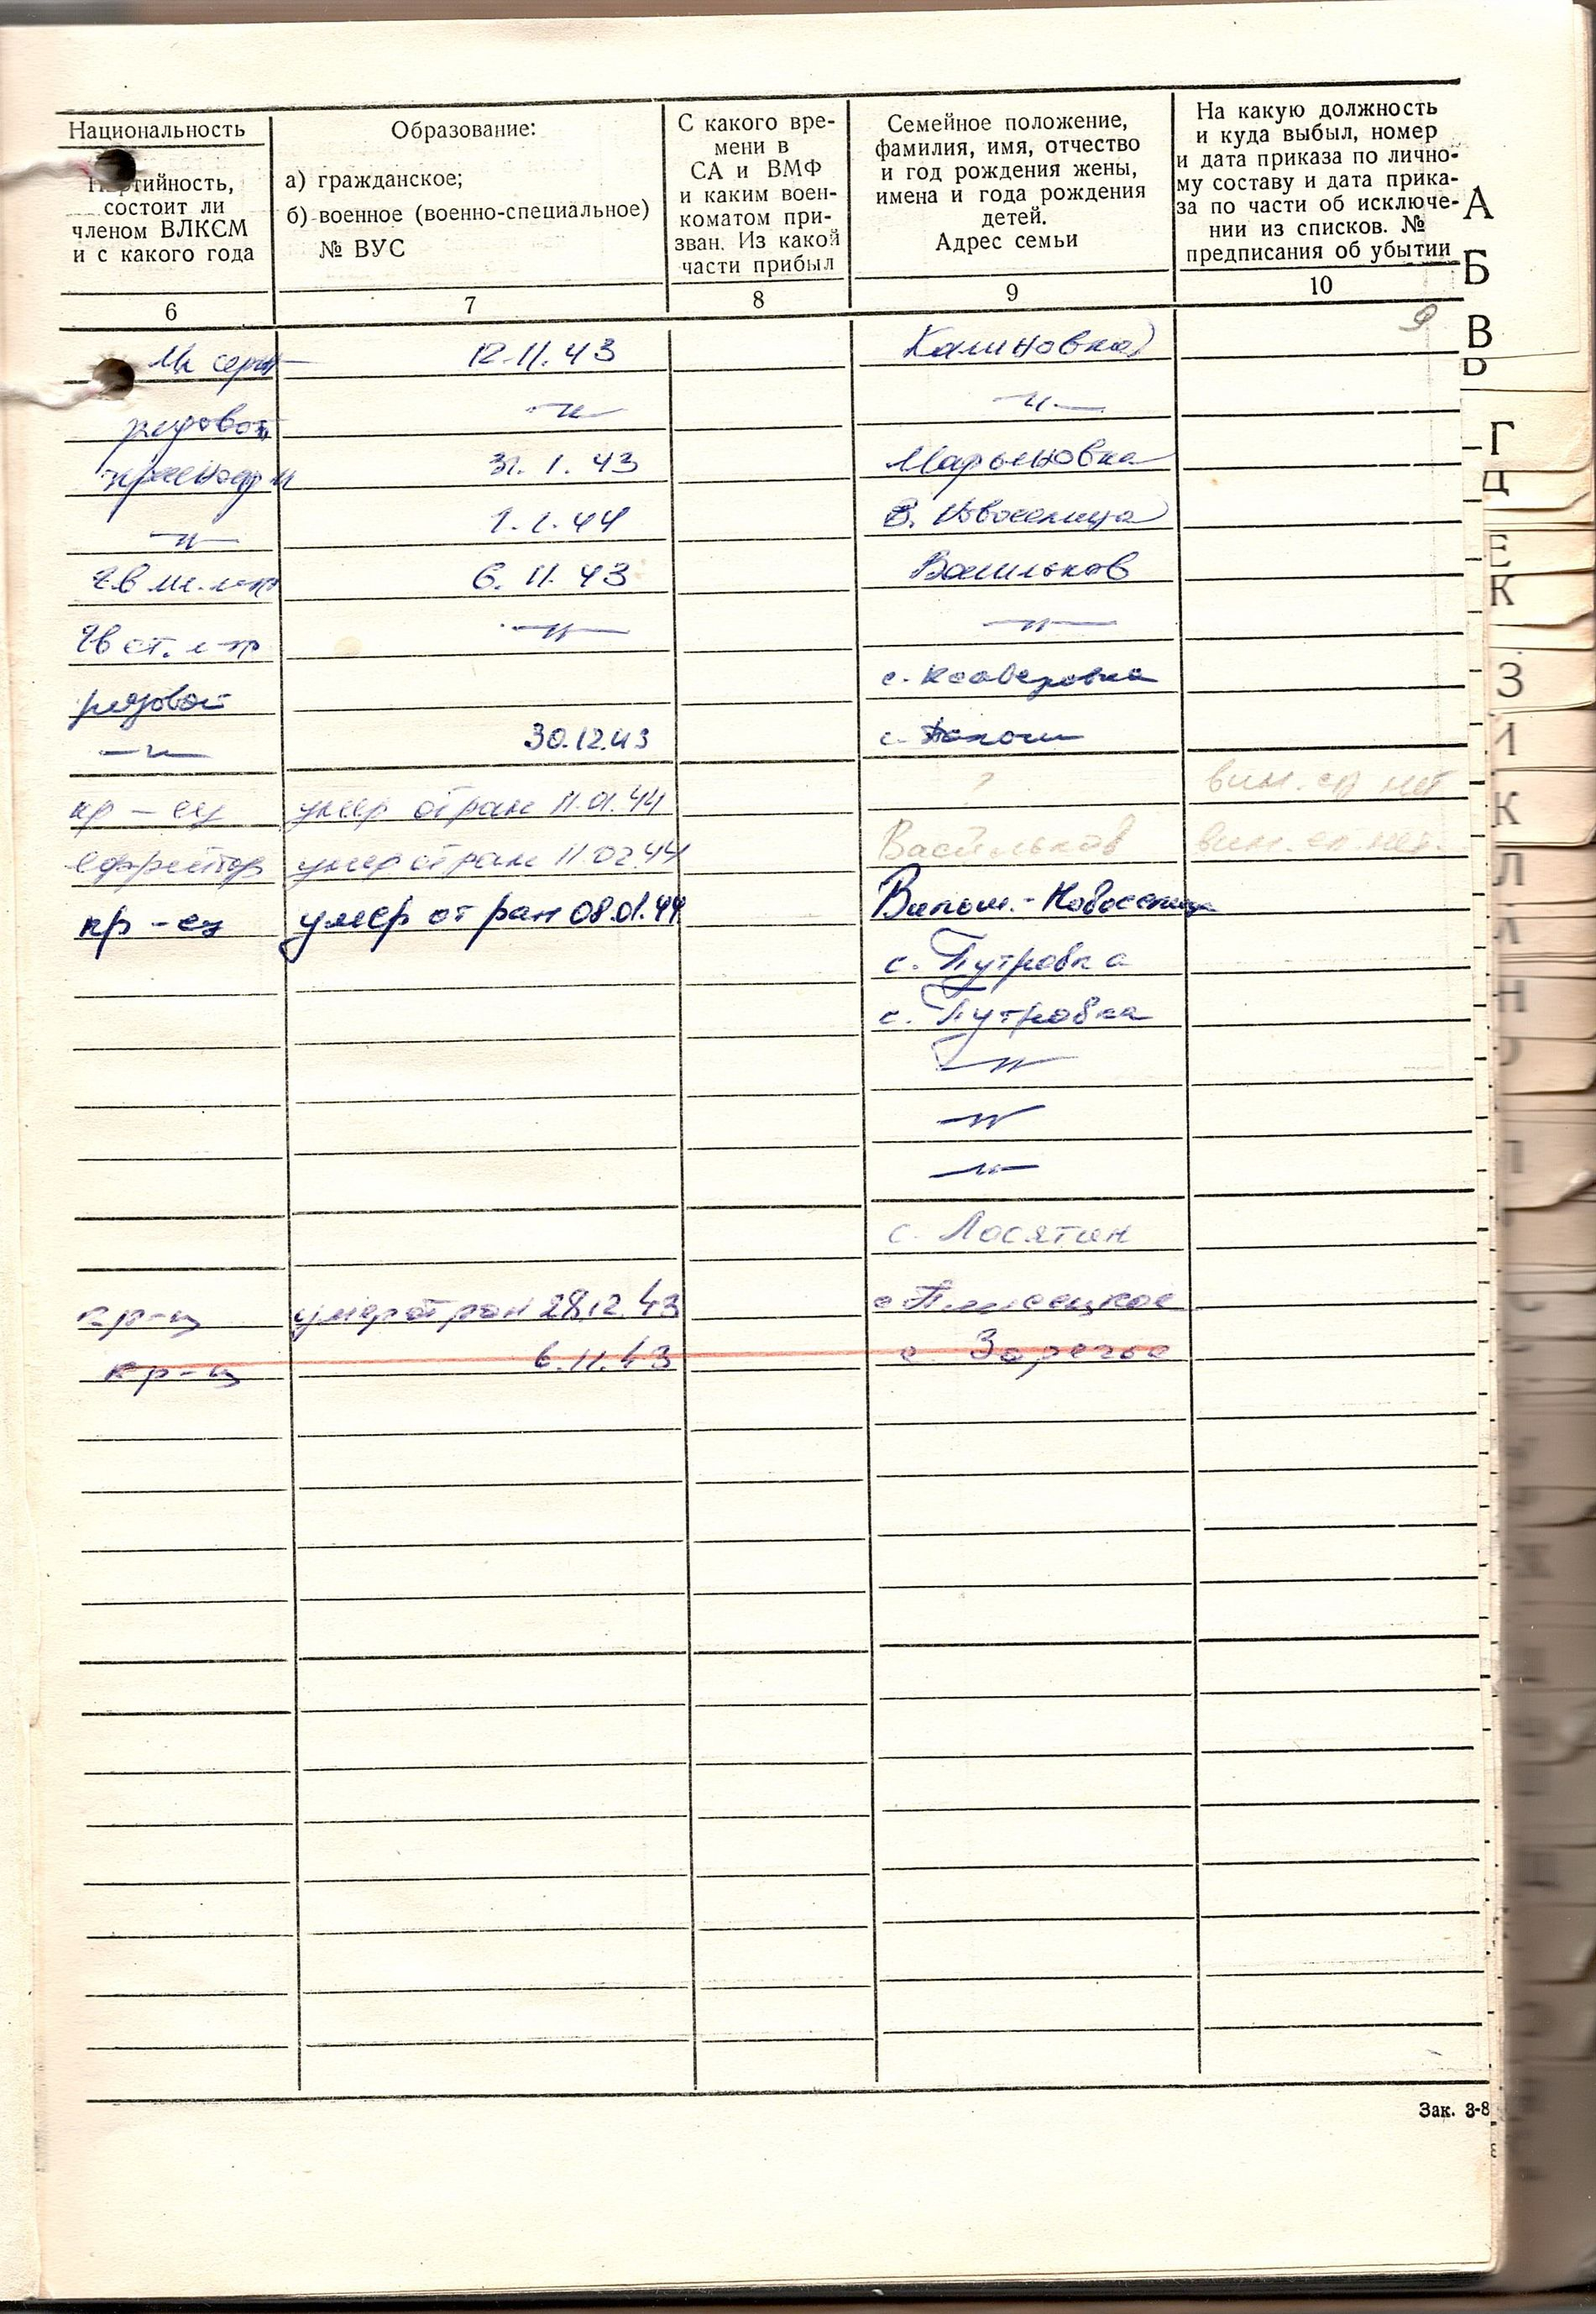 Национальность
Партийность,
состоит ли
членом ВЛКСМ
и с какого года
Образование:
а) гражданское;
б) военное (военно-специальное)
№ ВУС
С какого вре-
мени в
СА и ВМФ
и каким воен-
коматом при-
зван. Из какой
части прибыл
Семейное положение,
фамилия, имя, отчество
и год рождения жены,
имена и года рождения
детей.
Адрес семьи
На какую должность
и куда выбыл, номер
и дата приказа по лично-
му составу и дата прика-
за по части об исключе-
нии из списков. №
предписания об убытии
6 7 8 9 10
9
12.11.43 Калиновка
рядовой -"- -"-
31.1.43 Марьяновка
-"- 1.1.44 В. Новоселица
6.11.43 Васильков
Гв ст. л-т -"- -"-
рядовой с.
-"- 30.12.43 с.
кр-ец умер от ран 11.01.44 ? вин. сп нет
ефрейтор умер от ран 11.02.44 Васильков вин. сп. нет.
кр-ец умер от ран 08.01.44 Новоселица
с. Путровка
с. Путровка
-"-
-"-
-"-
с. Лосятин
кр-ц умер от ран 28.12.43 с Плисецкое
кр-ц 6.11.43 с. Заречье
Зак. 3-8
А
Б
В
Г
Д
Е
К
З
И
К
Л
Н